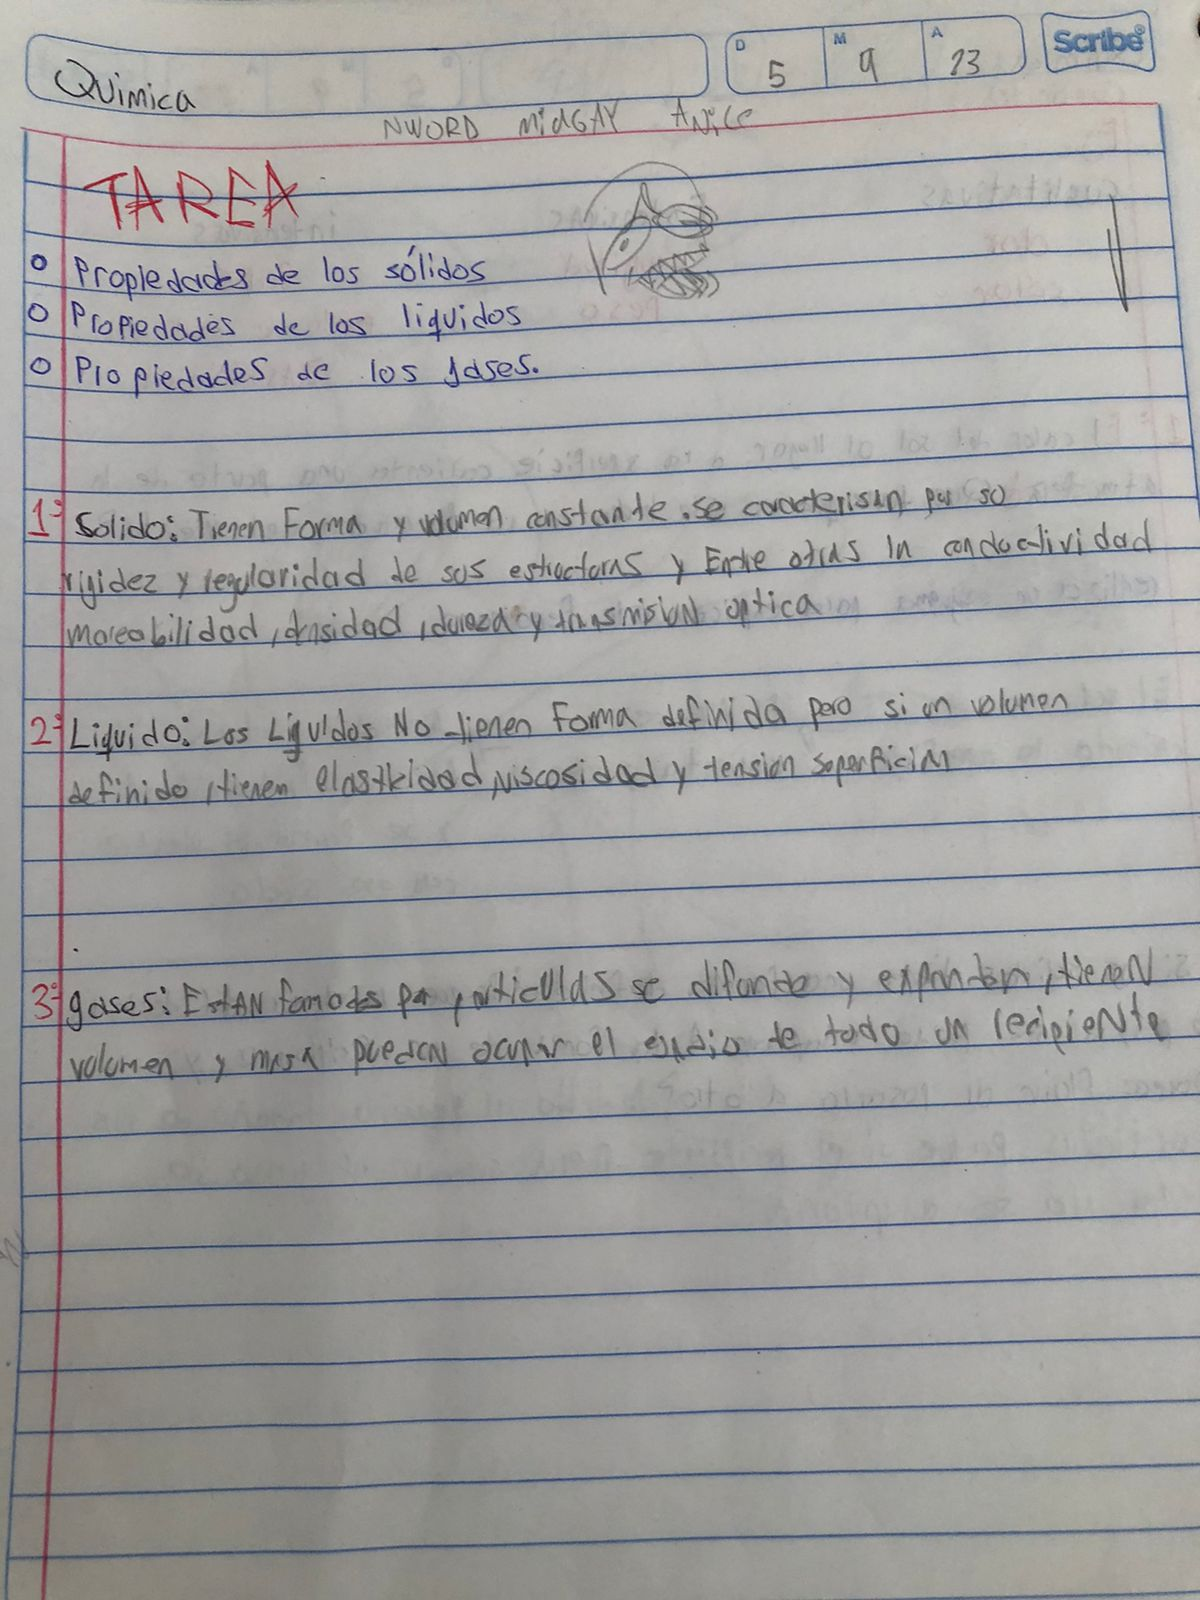 Scribe
D 5 M 9 A 23
Química
NWORD MidGAY
TAREA
o Propiedades de los sólidos
o Propiedades de los liquidos
o Propiedades de los gases.
1- Solido: Tienen Forma y volumen constante. se caracterisan por so
rigidez y regularidad de sus estructuras y Entre otras la conductividad
maleabilidad, densidad, dureza y transmision optica
2- Liquido: Los Liguidos No tienen Forma definida pero si un volumen
definido, tienen elasticidad, viscosidad y tension superficial
3- gases: EstAN particulas se difunde y expanden, tienen
volumen y masa pueden ocupar el espacio de todo un recipiente